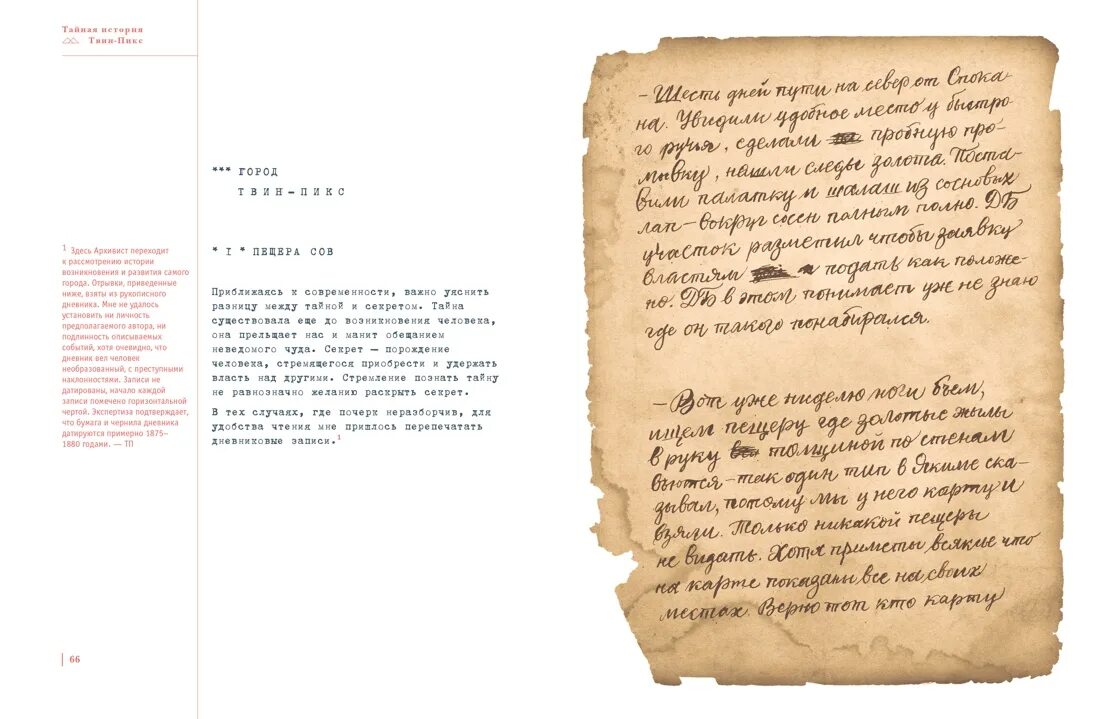 Тайная история
Твин-Пикс
*** ГОРОД
ТВИН-ПИКС
* I * ПЕЩЕРА СОВ
Приближаясь к современности, важно уяснить
разницу между тайной и секретом. Тайна
существовала еще до возникновения человека,
она прельщает нас и манит обещанием
неведомого чуда. Секрет — порождение
человека, стремящегося приобрести и удержать
власть над другими. Стремление познать тайну
не равнозначно желанию раскрыть секрет.
В тех случаях, где почерк неразборчив, для
удобства чтения мне пришлось перепечатать
дневниковые записи.1
1 Здесь Архивист переходит
к рассмотрению истории
возникновения и развития самого
города. Отрывки, приведенные
ниже, взяты из рукописного
дневника. Мне не удалось
установить ни личность
предполагаемого автора, ни
подлинность описываемых
событий, хотя очевидно, что
дневник вел человек
необразованный, с преступными
наклонностями. Записи не
датированы, начало каждой
записи помечено горизонтальной
чертой. Экспертиза подтверждает,
что бумага и чернила дневника
датируются примерно 1875–
1880 годами. — ТП
66
– Шесть дней пути на север от Спока-
на. Увидили удобное место у быстро-
го ручья, сделали пробную про-
мывку, нашли следы золота. Поста-
вили палатку и шалаш из сосновых
лап – вокруг сосен полным полно. ДБ
участок разметил чтобы заявку
властям подать как положе-
но. ДБ в этом понимает уже не знаю
где он такого понабирался.
– Вот уже ниделю ноги бъем,
ищем пещеру где золотые жилы
в руку толщиной по стенам
вьются – так один тип в Якиме ска-
зывал, потому мы у него карту и
взяли. Только никакой пещеры
не видать. Хотя приметы всякие что
на карте показаны все на своих
местах. Верно тот кто карту